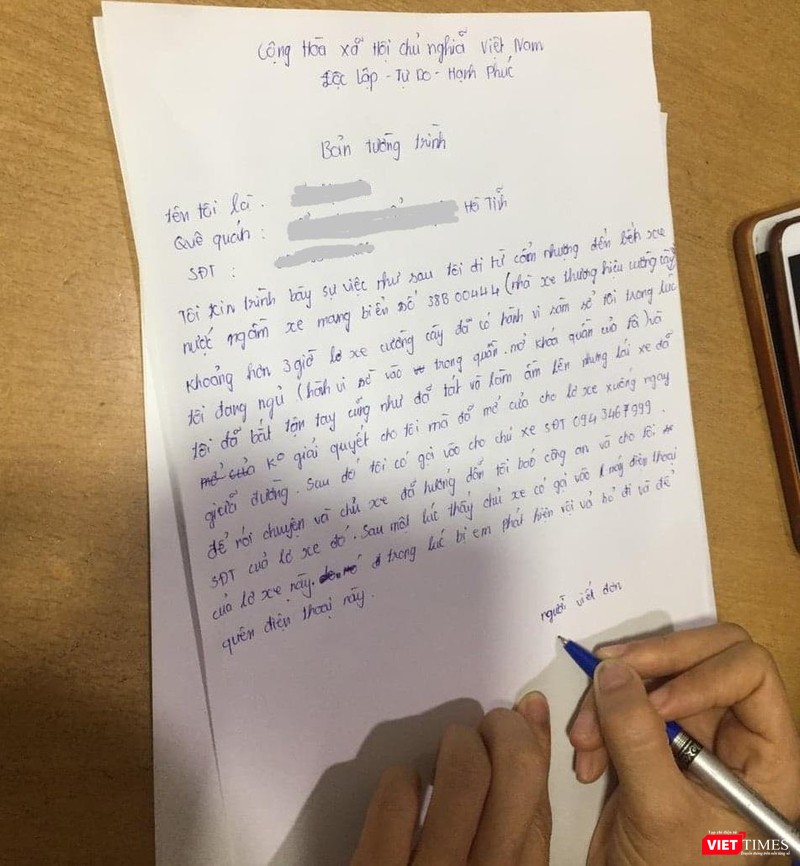 Cộng Hòa xã Hội chủ nghĩa Việt Nam
Độc Lập - Tự Do - Hạnh Phúc
Bản tường trình
Tên tôi là :
Quê quán : Hà Tĩnh
SĐT :
Tôi xin trình bày sự việc như sau tôi đi từ cẩm nhượng đến bến xe
nước ngầm xe mang biển số 38B 00444 (nhà xe thương hiệu cường cậy)
khoảng hơn 3 giờ lơ xe cường cậy đã có hành vi sàm sỡ tôi trong lúc
tôi đang ngủ (hành vi sờ vào trong quần. mở khoá quần của tôi) và
tôi đã bắt tận tay cũng như đã tát và làm ầm lên nhưng lái xe đã
ko giải quyết cho tôi mà đã mở cửa cho lơ xe xuống ngay
giữa đường. Sau đó tôi có gọi vào cho chủ xe SĐT 094 346 7999.
để nói chuyện và chủ xe đã hướng dẫn tôi báo công an và cho tôi
SĐT của lơ xe đó. Sau một lúc thấy chủ xe có gọi vào 1 máy điện thoại
của lơ xe này. trong lúc bị em phát hiện vội vả bỏ đi và để
quên điện thoại này.
người viết đơn
Tạp chí điện tử
VIET TIMES